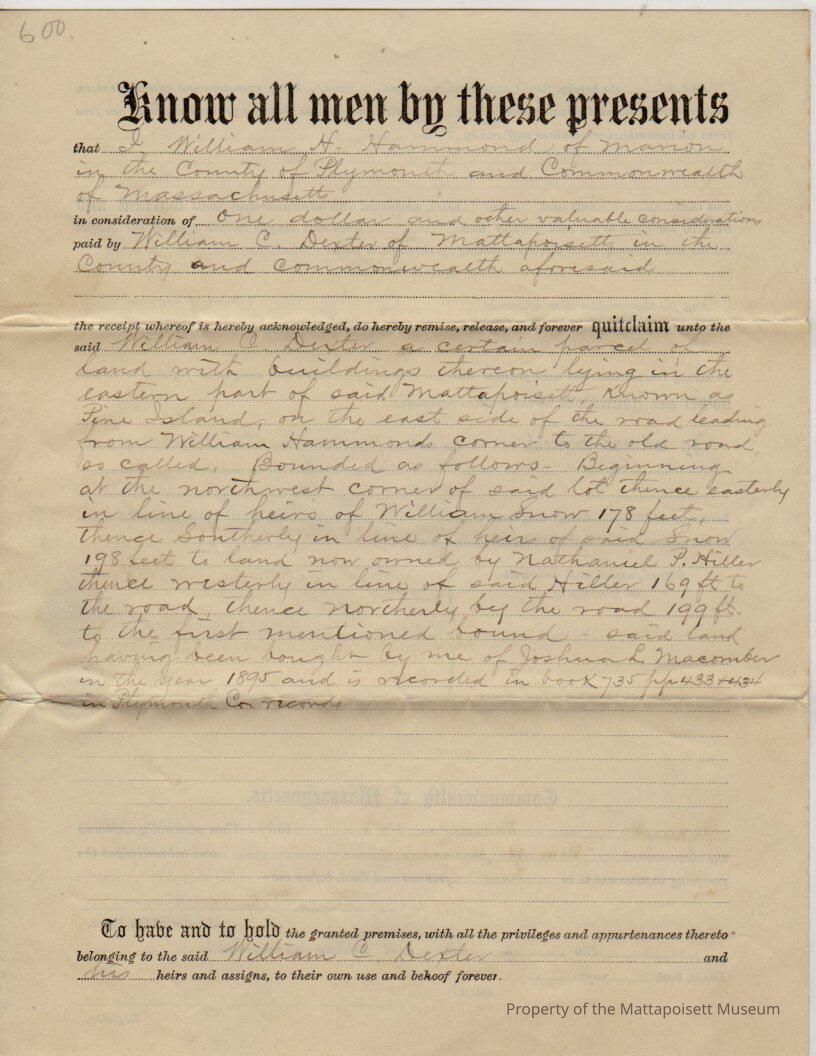 600.
Know all men by these presents
that I William H. Hammond of Marion
in the County of Plymouth and Commonwealth
of Massachusetts
in consideration of One dollar and other valuable considerations
paid by William C. Dexter of Mattapoisett in the
County and Commonwealth aforesaid
the receipt whereof is hereby acknowledged, do hereby remise, release, and forever quitclaim unto the
said William C. Dexter a certain parcel of
land with buildings thereon lying in the
eastern part of said Mattapoisett, known as
Pine Island, on the east side of the road leading
from William Hammonds corner to the old road,
so called. Bounded as follows - Beginning
at the northwest corner of said lot thence easterly
in line of heirs of William Snow 178 feet,
thence Southerly in line of heirs of said Snow
198 feet to land now owned by Nathaniel P. Hiller
thence westerly in line of said Hiller 169 ft to
the road, thence northerly by the road 199 ft.
to the first mentioned bound - said land
having been bought by me of Joshua L Macomber
in the year 1895 and is recorded in book 735 pp 433+434
in Plymouth Co. records
To have and to hold the granted premises, with all the privileges and appurtenances thereto
belonging to the said William C. Dexter and
his heirs and assigns, to their own use and behoof forever.
Property of the Mattapoisett Museum